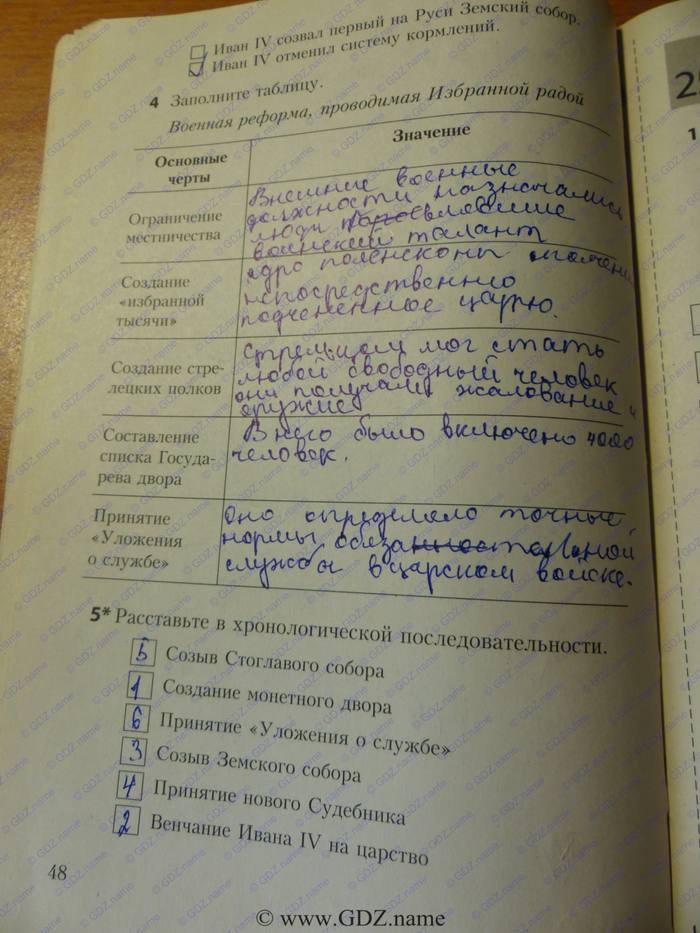 Иван IV созвал первый на Руси Земский собор.
Иван IV отменил систему кормлений.
4 Заполните таблицу.
Военная реформа, проводимая Избранной радой
Основные черты
Значение
Ограничение местничества
Внешние военные
должности назначались
люди
воинский талант
Создание «избранной тысячи»
ядро
непосредственно
подчененное царю.
Создание стре-
лецких полков
Стрельцом мог стать
любой свободный человек
они получали жалование и
оружие
Составление
списка Госуда-
рева двора
В него было включено 4000
человек.
Принятие
«Уложения
о службе»
Оно определяло точные
нормы обязательной
службы в царском войске.
5* Расставьте в хронологической последовательности.
5 Созыв Стоглавого собора
1 Создание монетного двора
6 Принятие «Уложения о службе»
3 Созыв Земского собора
4 Принятие нового Судебника
2 Венчание Ивана IV на царство
48
2
1
© www.GDZ.name